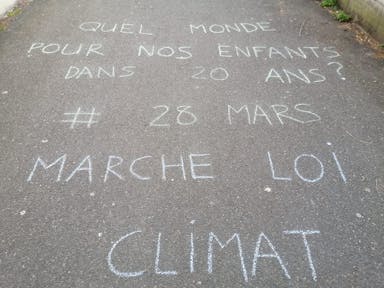 QUEL MONDE
POUR NOS ENFANTS
DANS 20 ANS?
# 28 MARS
MARCHE LOI
CLIMAT